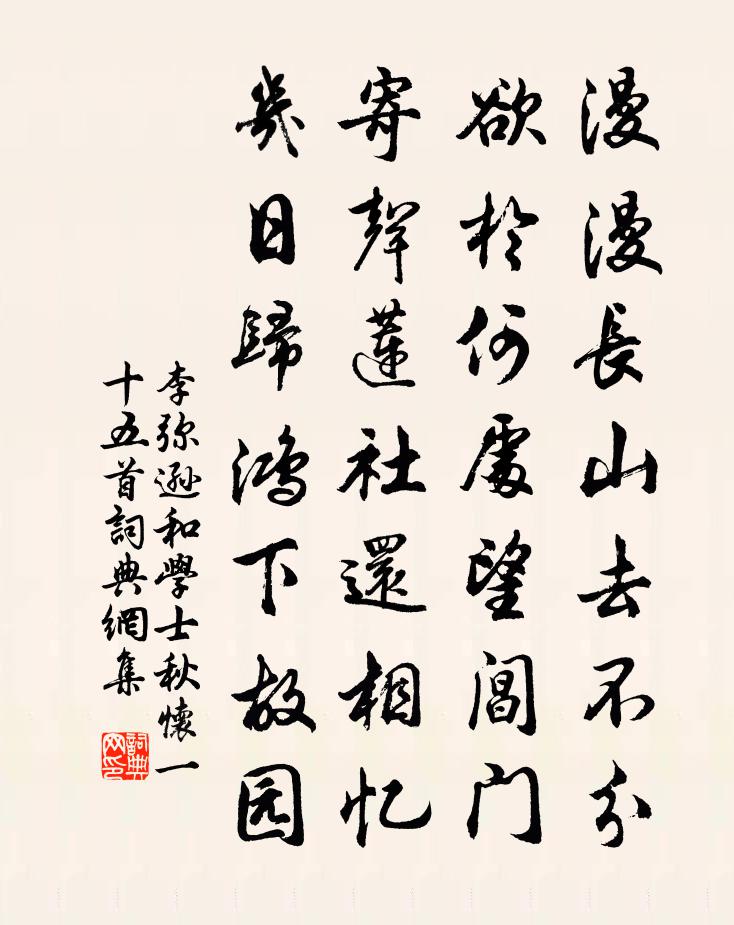 漫漫長山去不分
欲於何處望閶门
寄聲蓮社還相忆
幾日歸鴻下故园
李弥遜和學士秋懷一
十五首詞典網集
詞典网印